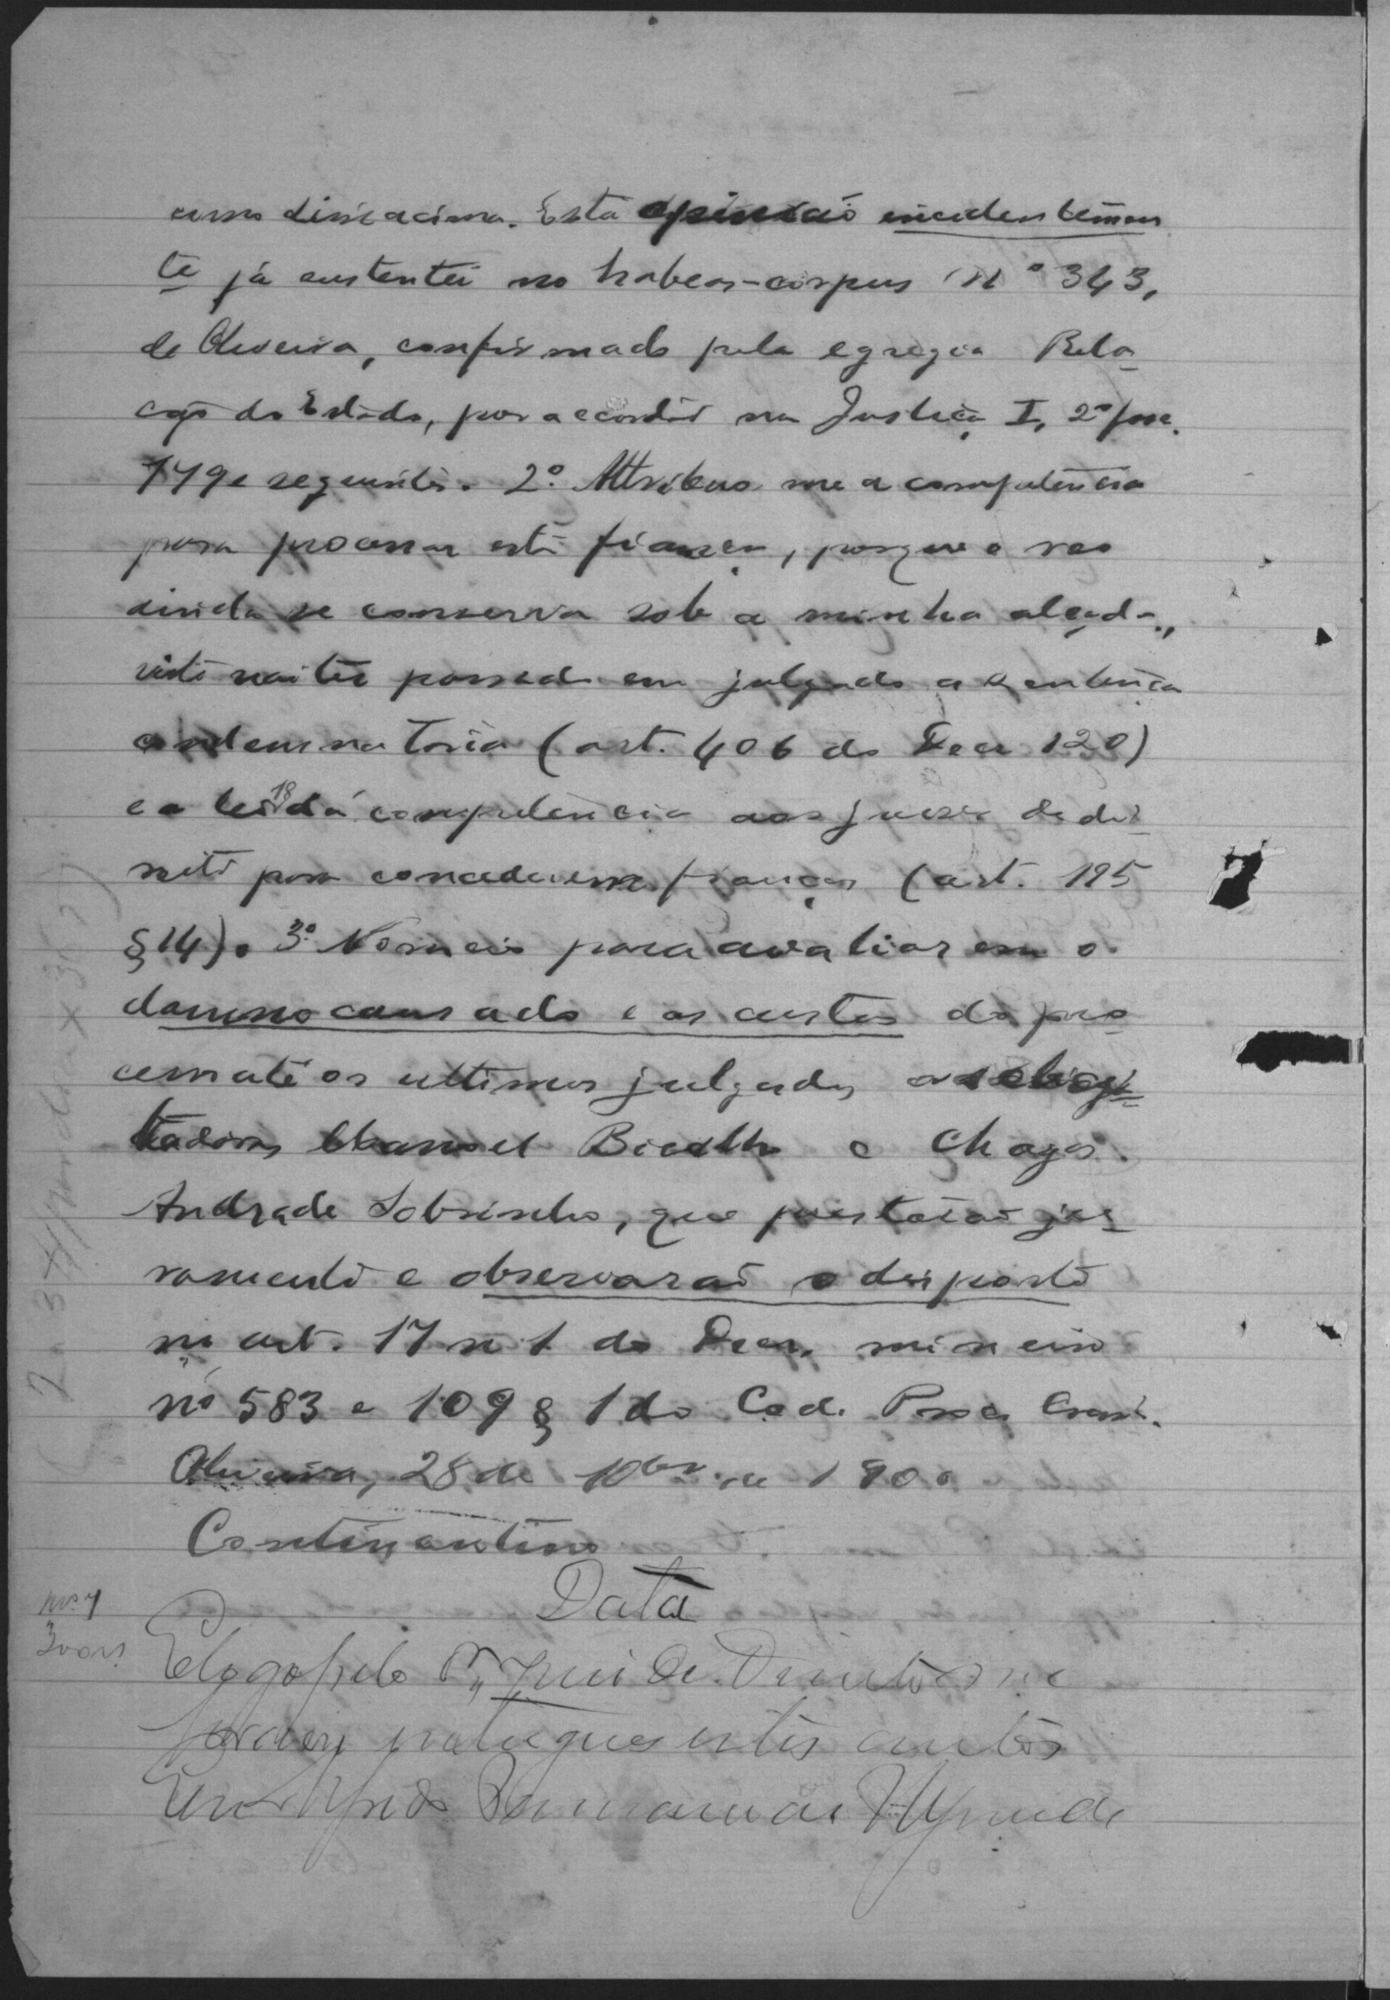 como disse acima. Esta opinião incidentemen
te já sustentei no habeas-corpus nº 343,
de Oliveira, confirmado pela egregia Rela
ção do Estado, por accordão na Justiça I, 2º fasc.
149 e seguintes. 2º Attribuo me a competencia
para processar esta fiança, porque o reo
ainda se conserva sob a minha alçada,
visto não ter passado em julgado a sentença
condemnatoria (art. 406 do Decr 120)
e a lei 18 dá competencia aos juizes de di
reito para concederem fianças (art. 195
§ 14). 3º Nomeio para avaliarem o
damno causado e as custas do pro
cesso até os ultimos julgados os
Manoel e Chagas
Andrade Sobrinho, que prestarão ju
ramento e observarão o disposto
no art. 17 n 1 do Decr. mineiro
nº 583 e 109 § 1 do Cod. Proc. Crim.
Oliveira, 28 de 10br. de 1900
Constinantino
Data
E logo pelo Dr Juiz de Direito me
forão entregues estes autos
Eu